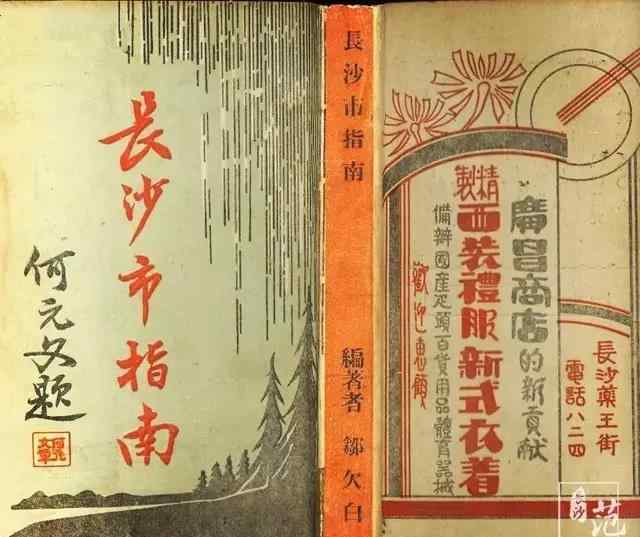 長沙市指南
何元文題
長沙市指南
編著者 鄒欠白
廣昌商店的新貢献
精製
西裝禮服新式衣着
備辦國產疋頭百貨用品體育器械
歡迎惠顧
長沙藥王街
電話八二四
長沙
范